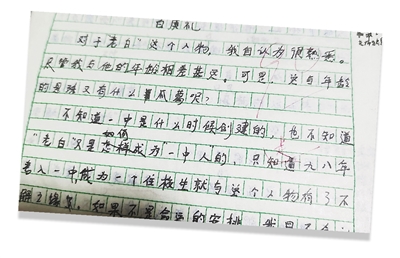 对于"老白"这个人物,我自认为很熟悉。
尽管我与他的年龄相差甚
可是,这与年龄
的差
又有什么瓜葛呢?
不知道一中是什么时候创建的,也不知道
如何
"老白"又是怎样成为"一中人"的,只知道九八年
考入一中成为一个住校生就与这个人物有了不
解之缘。如果不是命运的安排,我